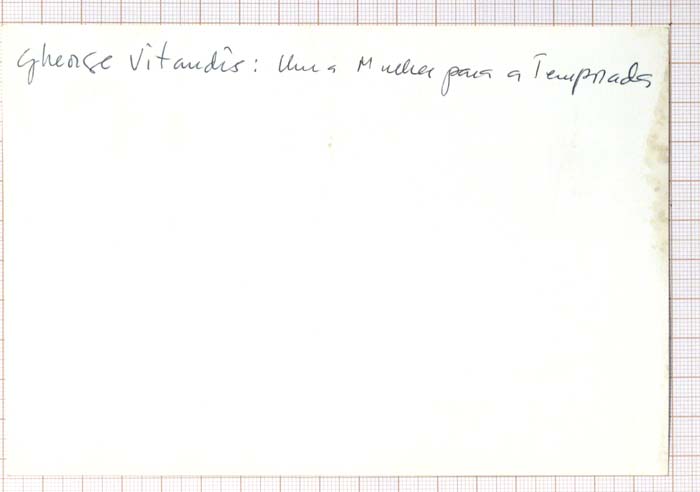 Gheorge Vitandîs: Uma Mulher para a Temporada